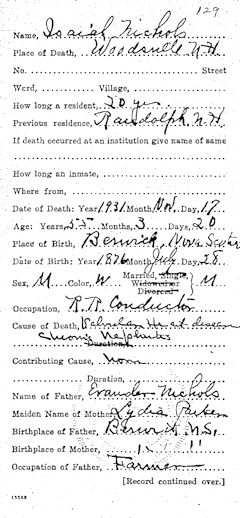 129
Name, Isaiah Nichols
Place of Death, Woodsville N.H.
No. Street
Ward, Village,
How long a resident, 20 yrs
Previous residence, Randolph N.H
If death occurred at an institution give name of same
How long an inmate,
Where from,
Date of Death: Year, 1931 Month, Nov. Day, 17
Age: Years, 55 Months, 3 Days, 20
Place of Birth, Berwick, Nova Scotia
Date of Birth: Year, 1876 Month, July Day, 28
Sex, M Color, W Married, Single, Widowed or Divorced } M
Occupation, R.R. Conductor
Cause of Death, Valvular Heart disease
Chronic Nephritis
Duration,
Contributing Cause, None
Duration,
Name of Father, Evander Nichols
Maiden Name of Mother, Lydia Parker
Birthplace of Father, Berwick N.S.
Birthplace of Mother, " "
Occupation of Father, Farmer
[Record continued over.]